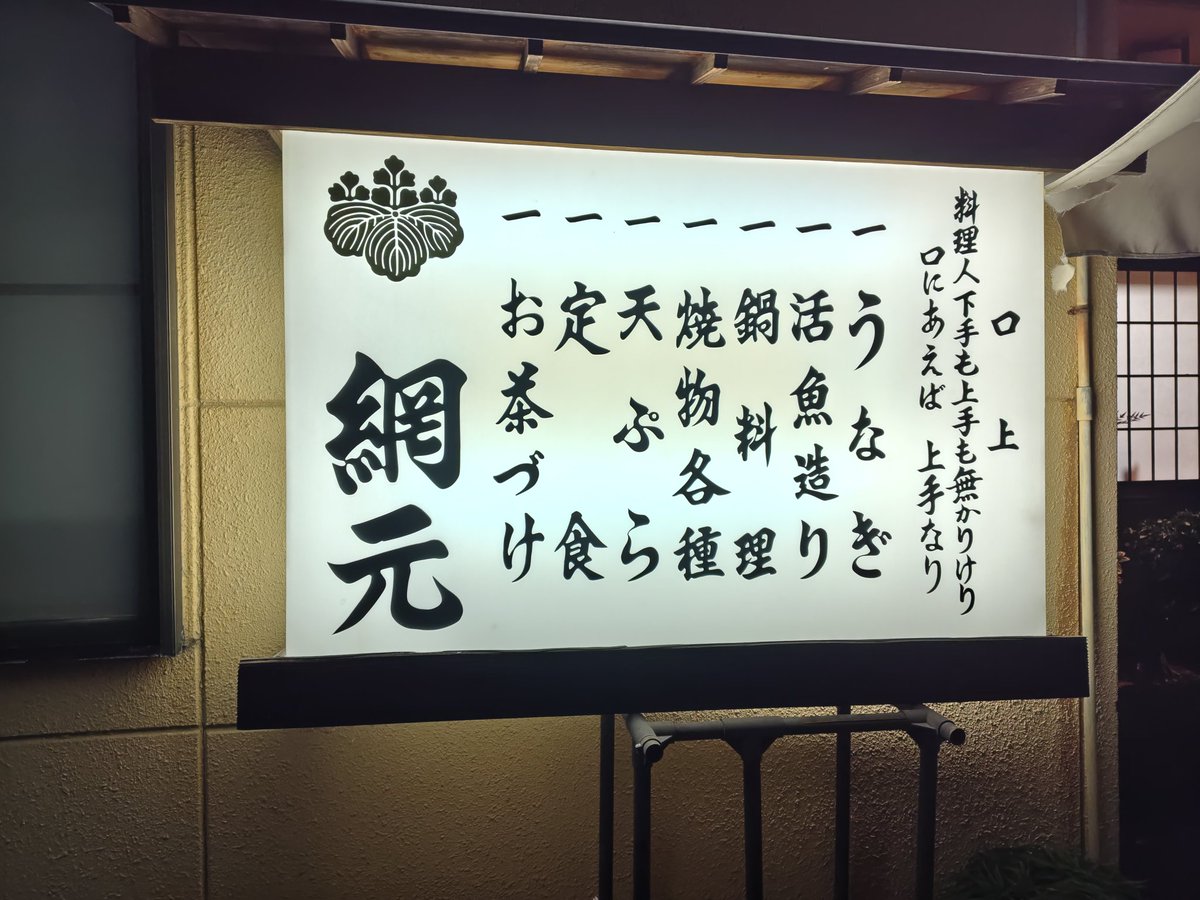 口上
料理人下手も上手も無かりけり
口にあえば 上手なり
一 うなぎ
一 活魚造り
一 鍋料理
一 焼物各種
一 天ぷら
一 定食
一 お茶づけ
網元